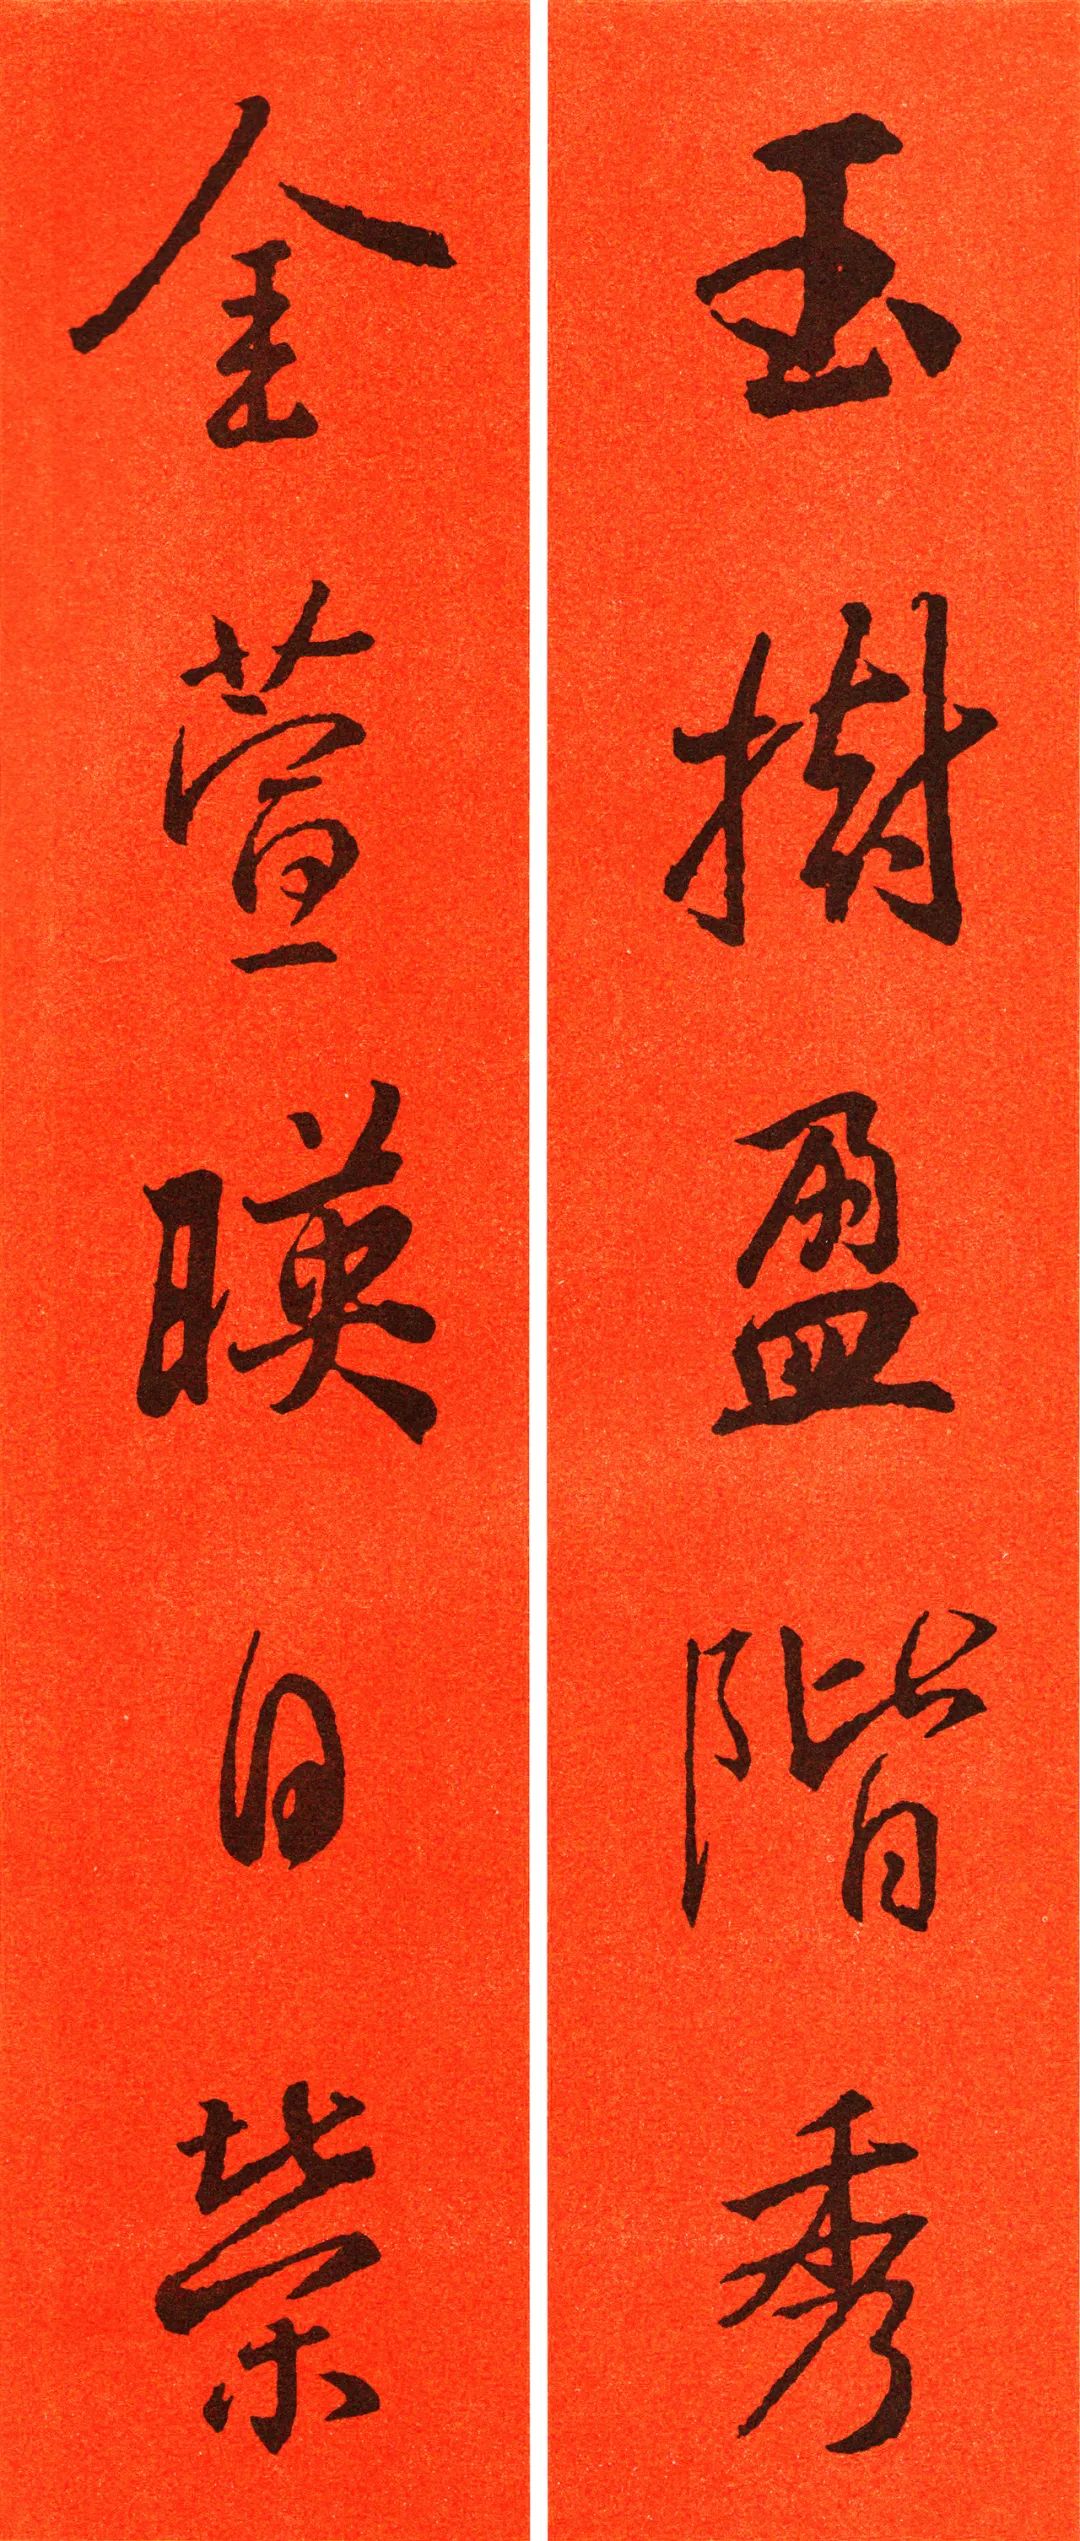 玉樹盈階秀
金萱暎日榮